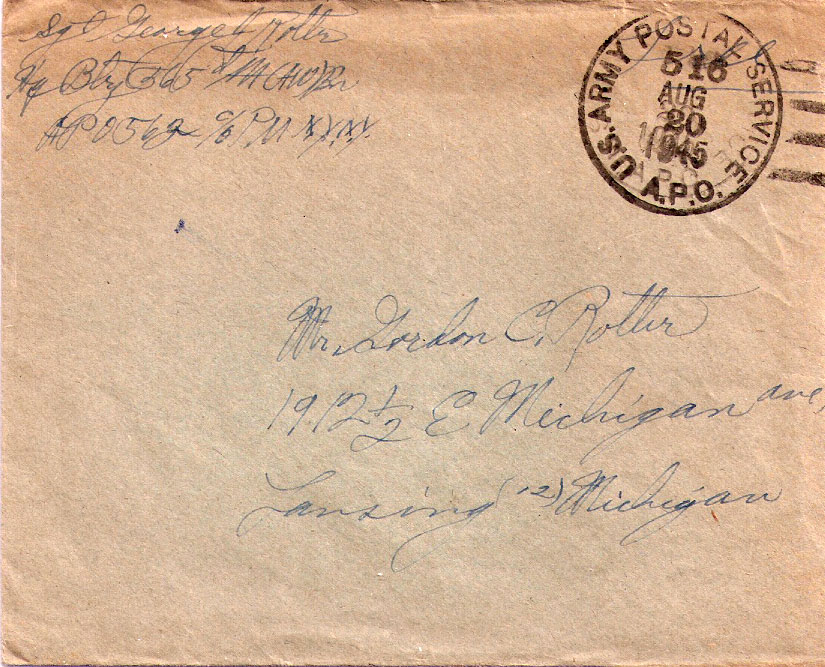 Sgt George L Rotter
Hq Btry 565th AAA (AW) Bn
APO 562 c/o P.M. N.Y. N.Y.
Free
U.S. ARMY POSTAL SERVICE
516
AUG
20
1945
A.P.O.
Mr. Gordon C. Rotter
1912 1/2 E Michigan ave,
Lansing (12) Michigan